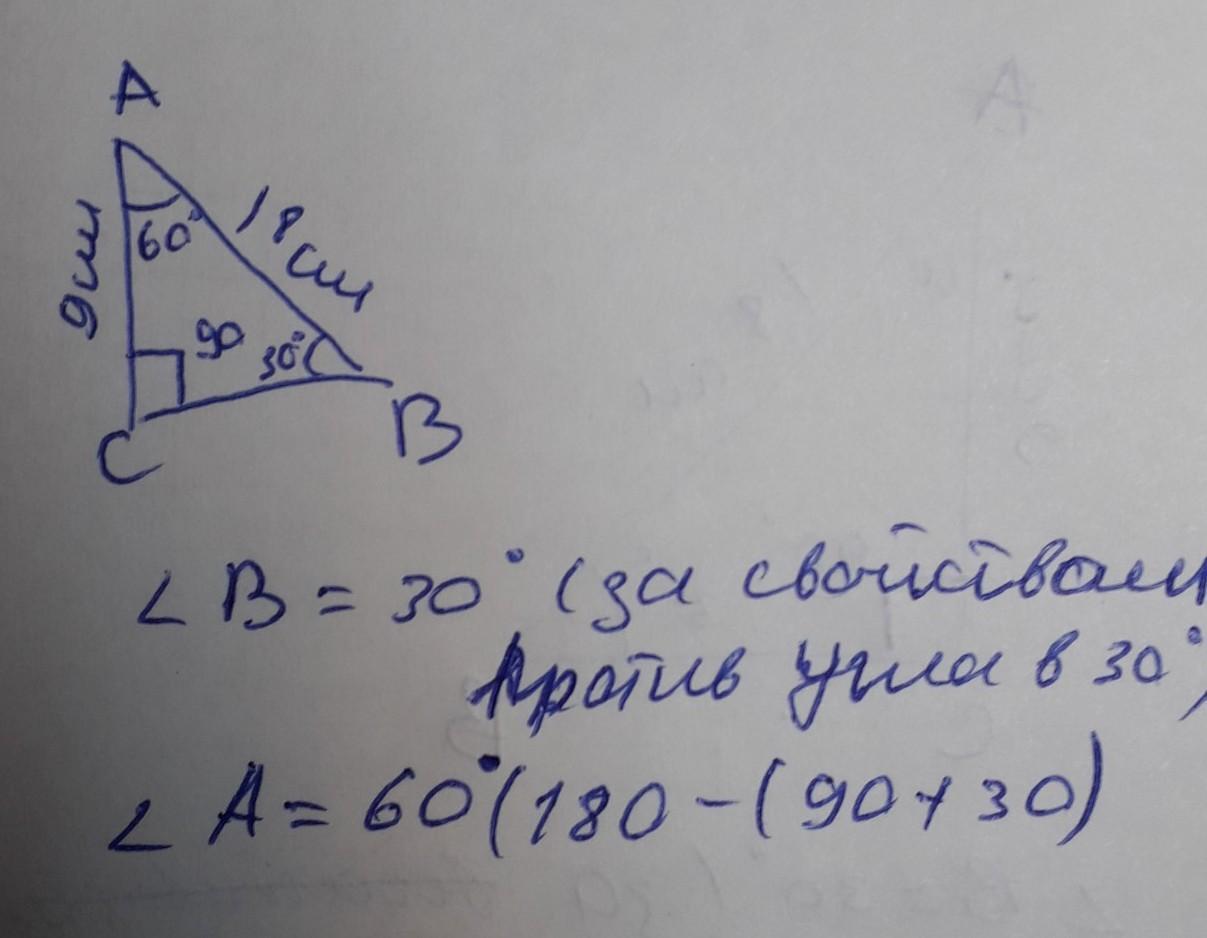 A
9см
60°
18см
90
30°
C
B
∠ B = 30° (за свойствам
против угла в 30°)
∠ A = 60° (180 - (90 + 30)